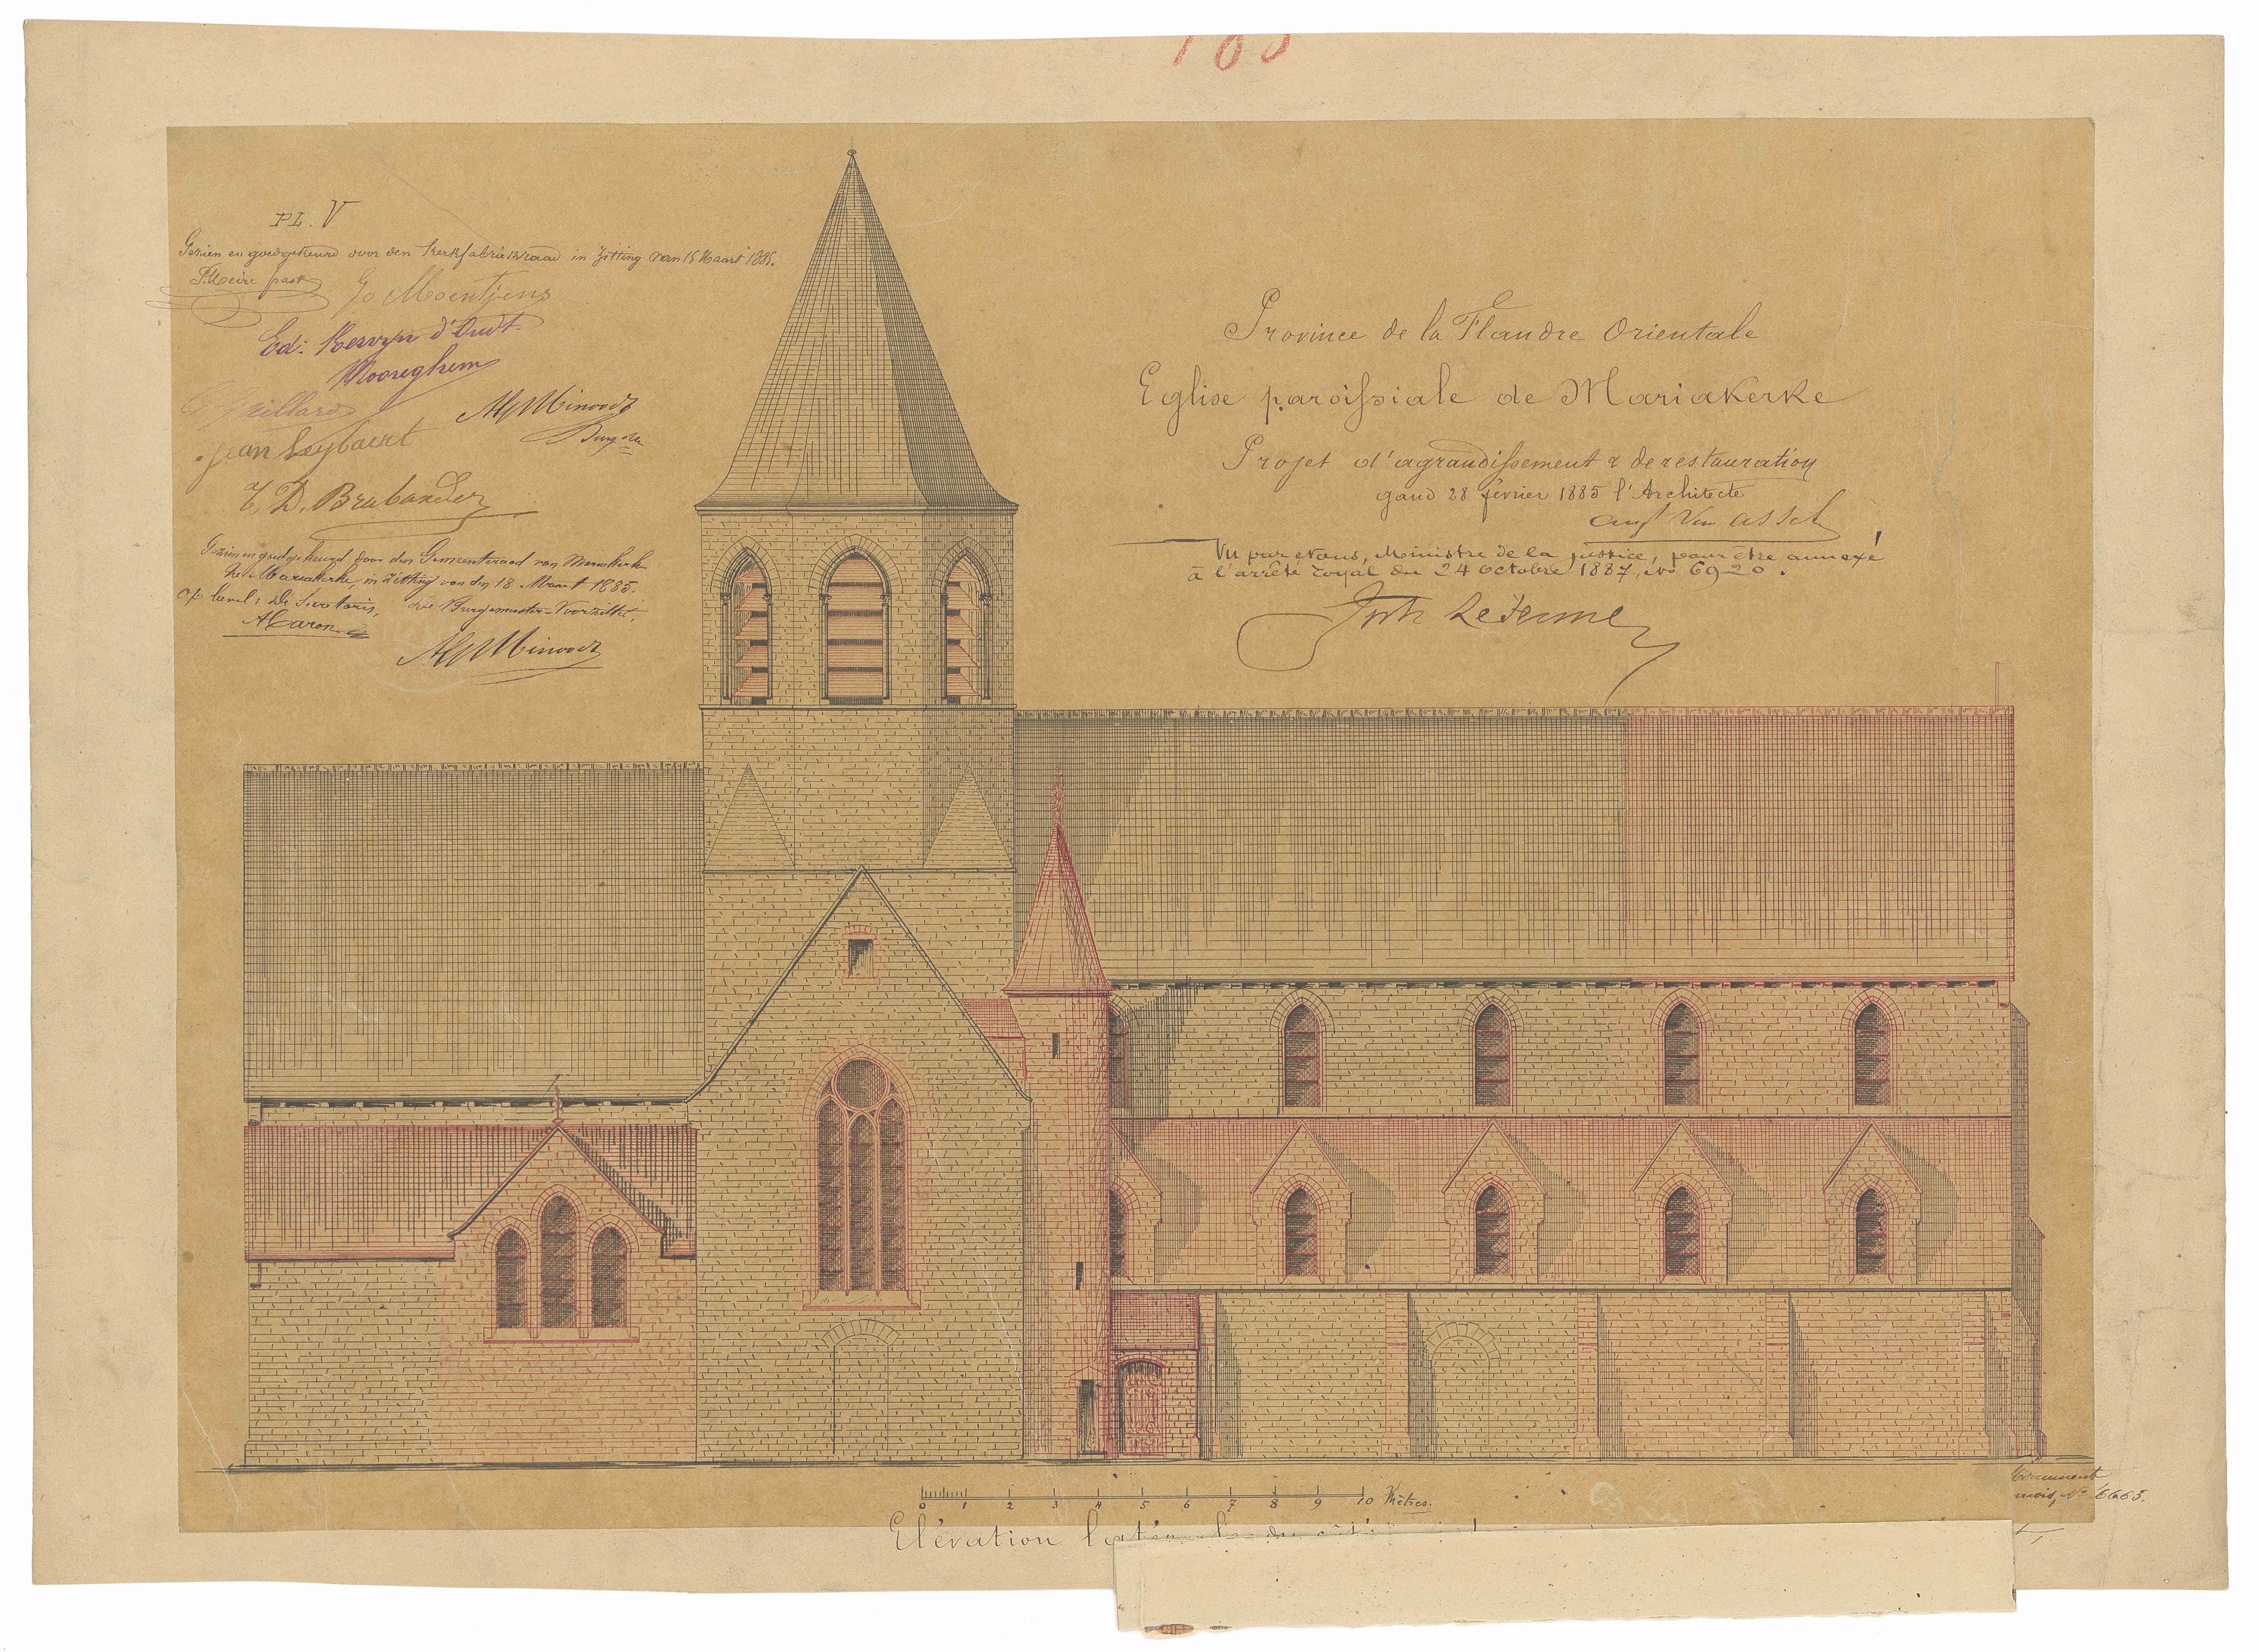 PL. V
Gezien en goedgekeurd door den Kerkfabriekraad in Zitting van 15 Maart 1885.
P. Meire past
Jo Moentjens
Ed: Kervyn d'Oudt
Mooreghem
Alf Minood
Burgm
Jean Seybaert
T. D. Brabander
Gezien en goedgekeurd door den Gemeenteraad van Mariakerk
Mariakerke, in zitting van den 18 Maart 1885.
De Secretaris, De Burgemeester-Voorzitter,
A Caron
Alf Minood
Province de la Flandre Orientale
Eglise paroissiale de Mariakerke
Projet d'agrandissement & de restauration
gand 28 février 1885 l'Architecte
Aug Van Assche
Vu par nous, Ministre de la justice, pour être annexé
à l'arrêté royal du 24 octobre 1887, no 6920.
Lejeune
0 1 2 3 4 5 6 7 8 9 10 Mètres.
Elévation latérale du côté
No 6663.